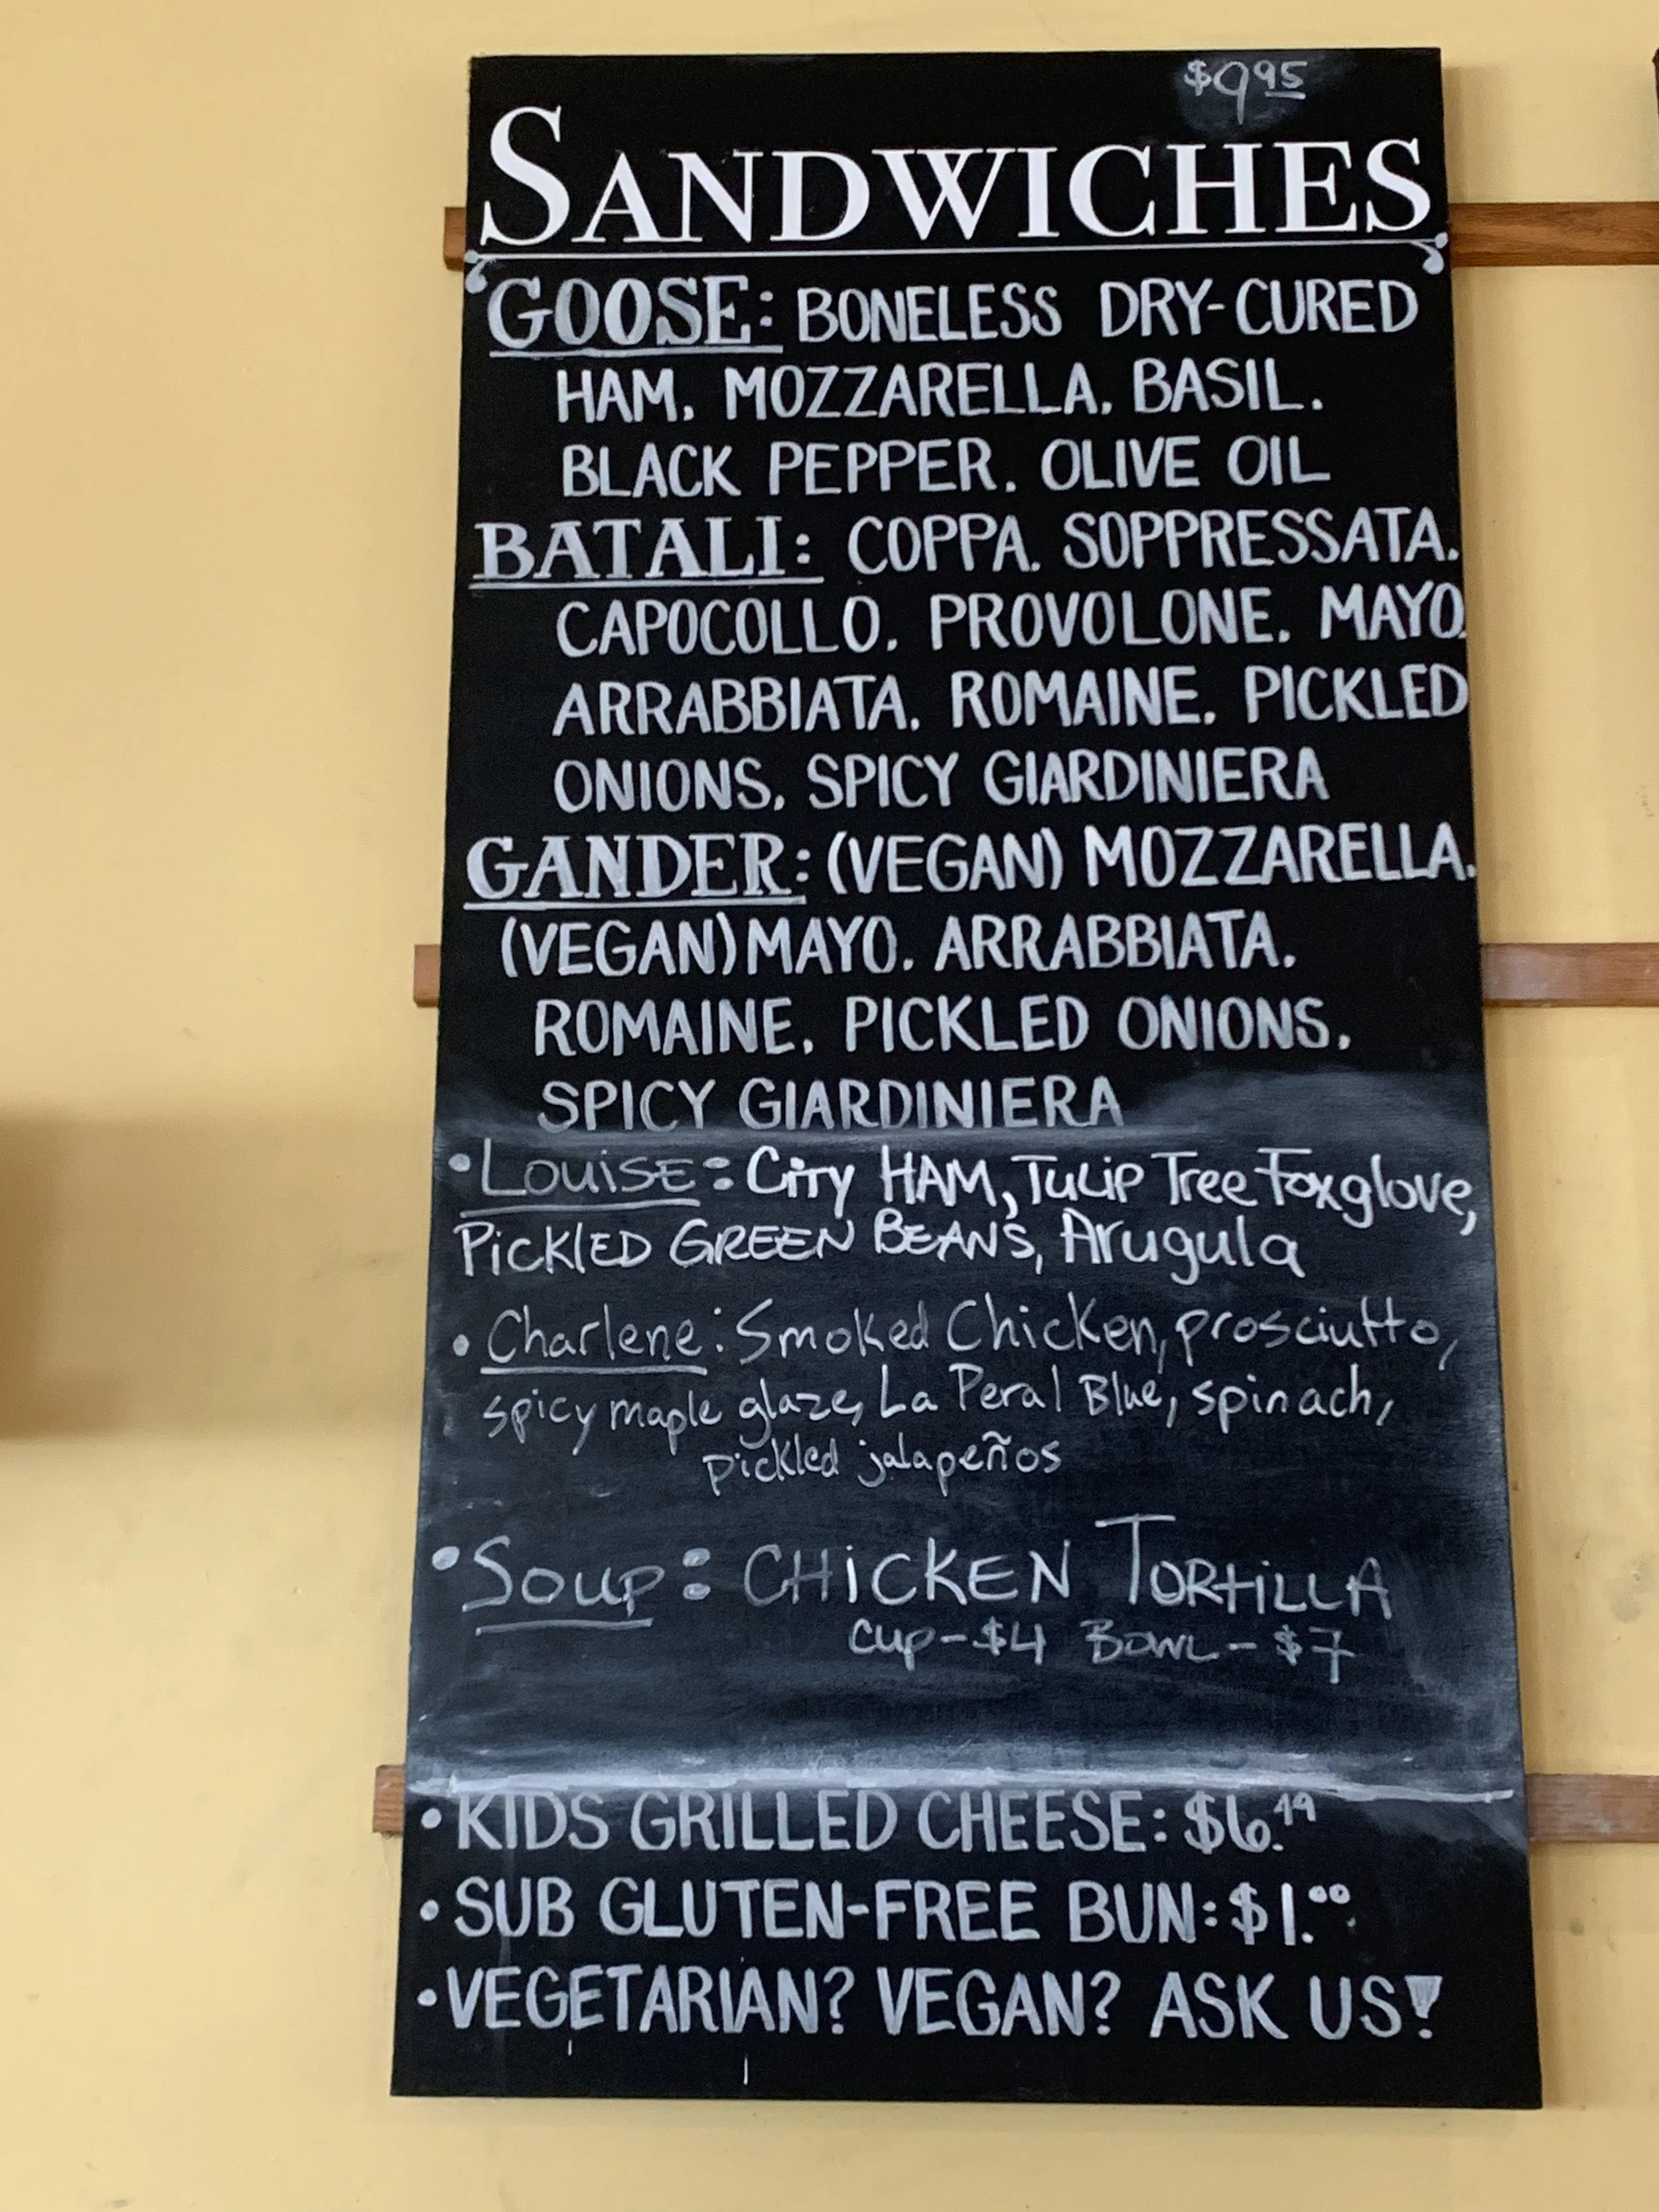 $9.95
SANDWICHES
GOOSE: BONELESS DRY-CURED
HAM, MOZZARELLA, BASIL,
BLACK PEPPER, OLIVE OIL
BATALI: COPPA, SOPPRESSATA,
CAPOCOLLO, PROVOLONE, MAYO,
ARRABBIATA, ROMAINE, PICKLED
ONIONS, SPICY GIARDINIERA
GANDER: (VEGAN) MOZZARELLA,
(VEGAN) MAYO, ARRABBIATA,
ROMAINE, PICKLED ONIONS,
SPICY GIARDINIERA
•LOUISE: City HAM, TULIP Tree Foxglove,
PICKLED GREEN BEANS, Arugula
• Charlene: Smoked Chicken, prosciutto,
spicy maple glaze, La Peral Blue, spinach,
pickled jalapeños
•Soup: CHICKEN TORTILLA
Cup-$4 BOWL-$7
• KIDS GRILLED CHEESE: $6.49
• SUB GLUTEN-FREE BUN: $1.00
• VEGETARIAN? VEGAN? ASK US!